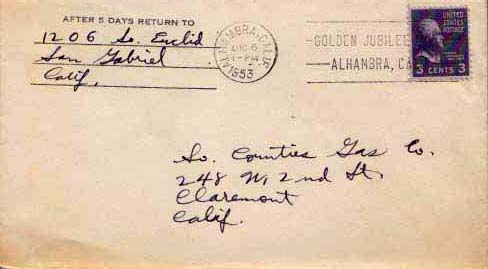 AFTER 5 DAYS RETURN TO
1206 So. Euclid
San Gabriel
Calif.
ALHAMBRA, CALIF.
AUG 6
1-PM
1953
GOLDEN JUBILEE
ALHAMBRA, CA
UNITED
STATES
POSTAGE
3 CENTS 3
So. Counties Gas Co.
248 W. 2nd St.
Claremont
Calif.